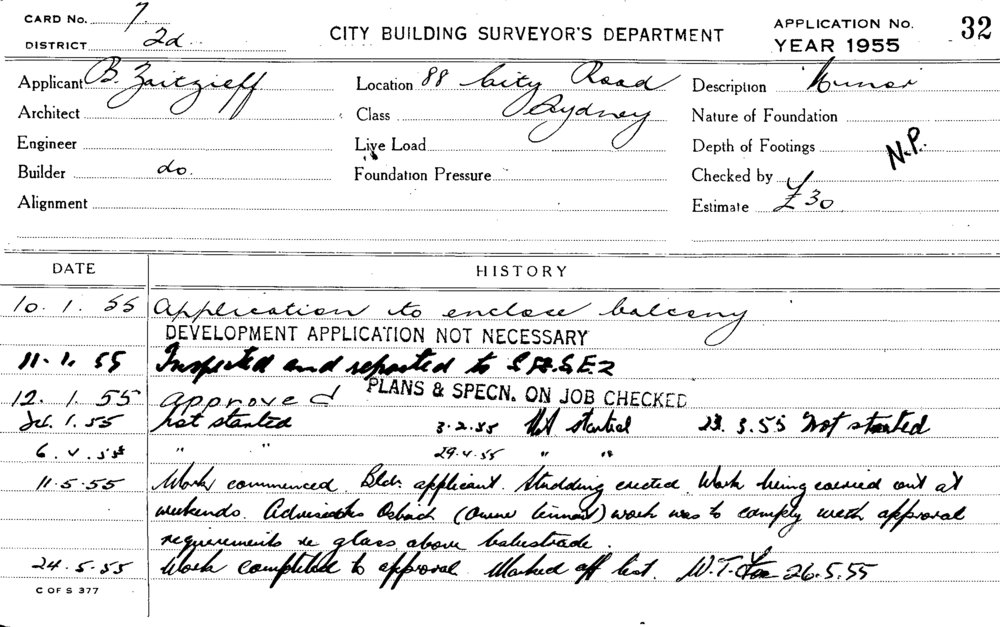 CARD No. 7
DISTRICT 2d
CITY BUILDING SURVEYOR'S DEPARTMENT
APPLICATION No. 32
YEAR 1955
Applicant B. Zaitzieff
Location 88 City Road
Sydney
Description Minor
Architect
Class
Nature of Foundation
Engineer
Live Load
Depth of Footings
N.P.
Builder do.
Foundation Pressure
Checked by
Alignment
Estimate £30
DATE HISTORY
10. 1. 55 Application to enclose balcony
DEVELOPMENT APPLICATION NOT NECESSARY
11. 1. 55 Inspected and reported to
PLANS & SPECN. ON JOB CHECKED
12. 1. 55 Approved
1. 55 Not started 3.2.55 Not started 23.3.55 Not started
6. 4. 55 " " 29.4.55 " "
11.5.55 Work commenced. Bldr. applicant. Studding erected. Work being carried out at
weekends. Advised (Owner tennant) work was to comply with approval
requirements re glass above balustrade.
24.5.55 Work completed to approval. Marked off list. W.T. 26.5.55
C OF S 377